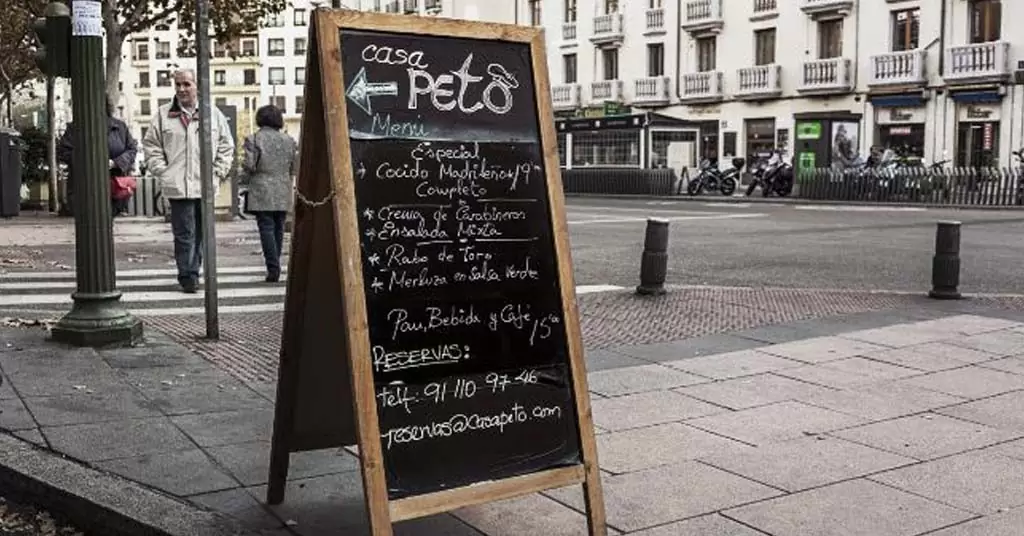 casa
PETÓ
Menú
Especial
* Cocido Madrileño 19
Completo
* Crema de Carabineros
* Ensalada Mixta
* Rabo de Toro
* Merluza en Salsa Verde
Pan, Bebida y Café /15
RESERVAS:
telf: 91 110 97 46
reservas@casapeto.com